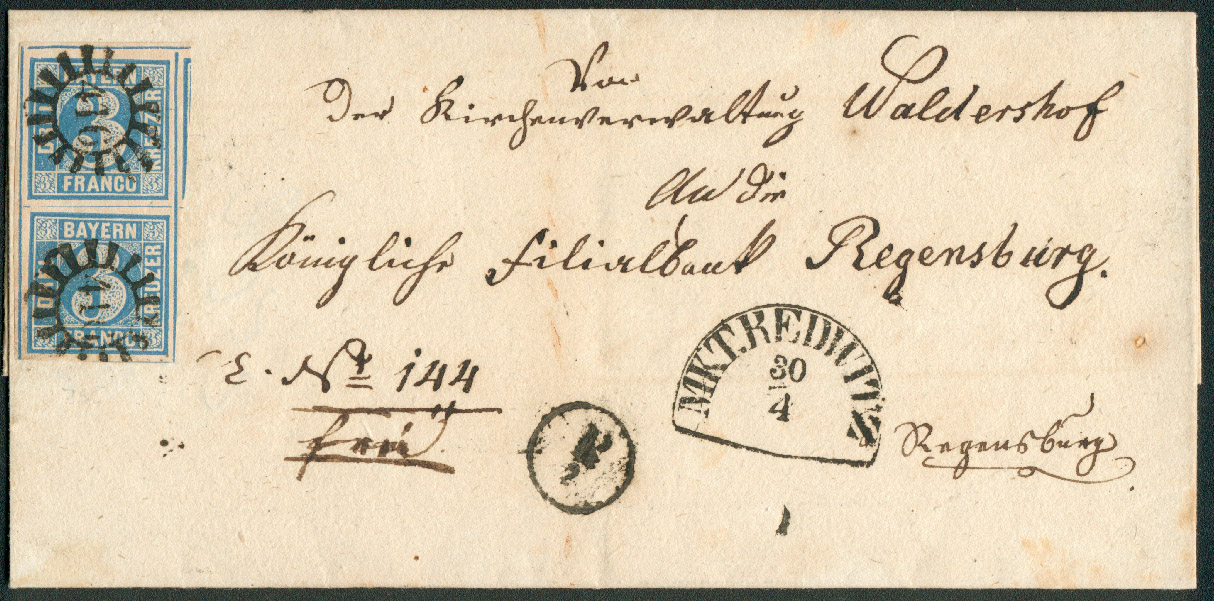 BAYERN
KREUZER
FRANCO
BAYERN
KREUZER
FRANCO
Von
der Kirchenverwaltung Waldershof
An die
Königliche Filialbank Regensburg.
E. Nr 144
frei
MKT. REDWITZ
30
4
Regensburg